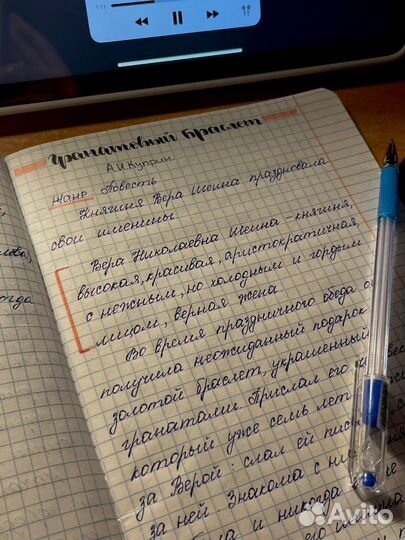 1:13
Гранатовый браслет
А.И.Куприн
Жанр: Повесть
Княгиня Вера Шеина праздновала
свои именины.
Вера Николаевна Шеина - княгиня,
высокая, красивая, аристократичная,
с нежным, но холодным и гордым
лицом, верная жена
Во время праздничного обеда
получила неожиданный подарок
золотой браслет, украшенный
гранатами. Прислал его
который уже семь лет
за Верой: слал ей
за ней. Знакома с
и никогда
его
Avito